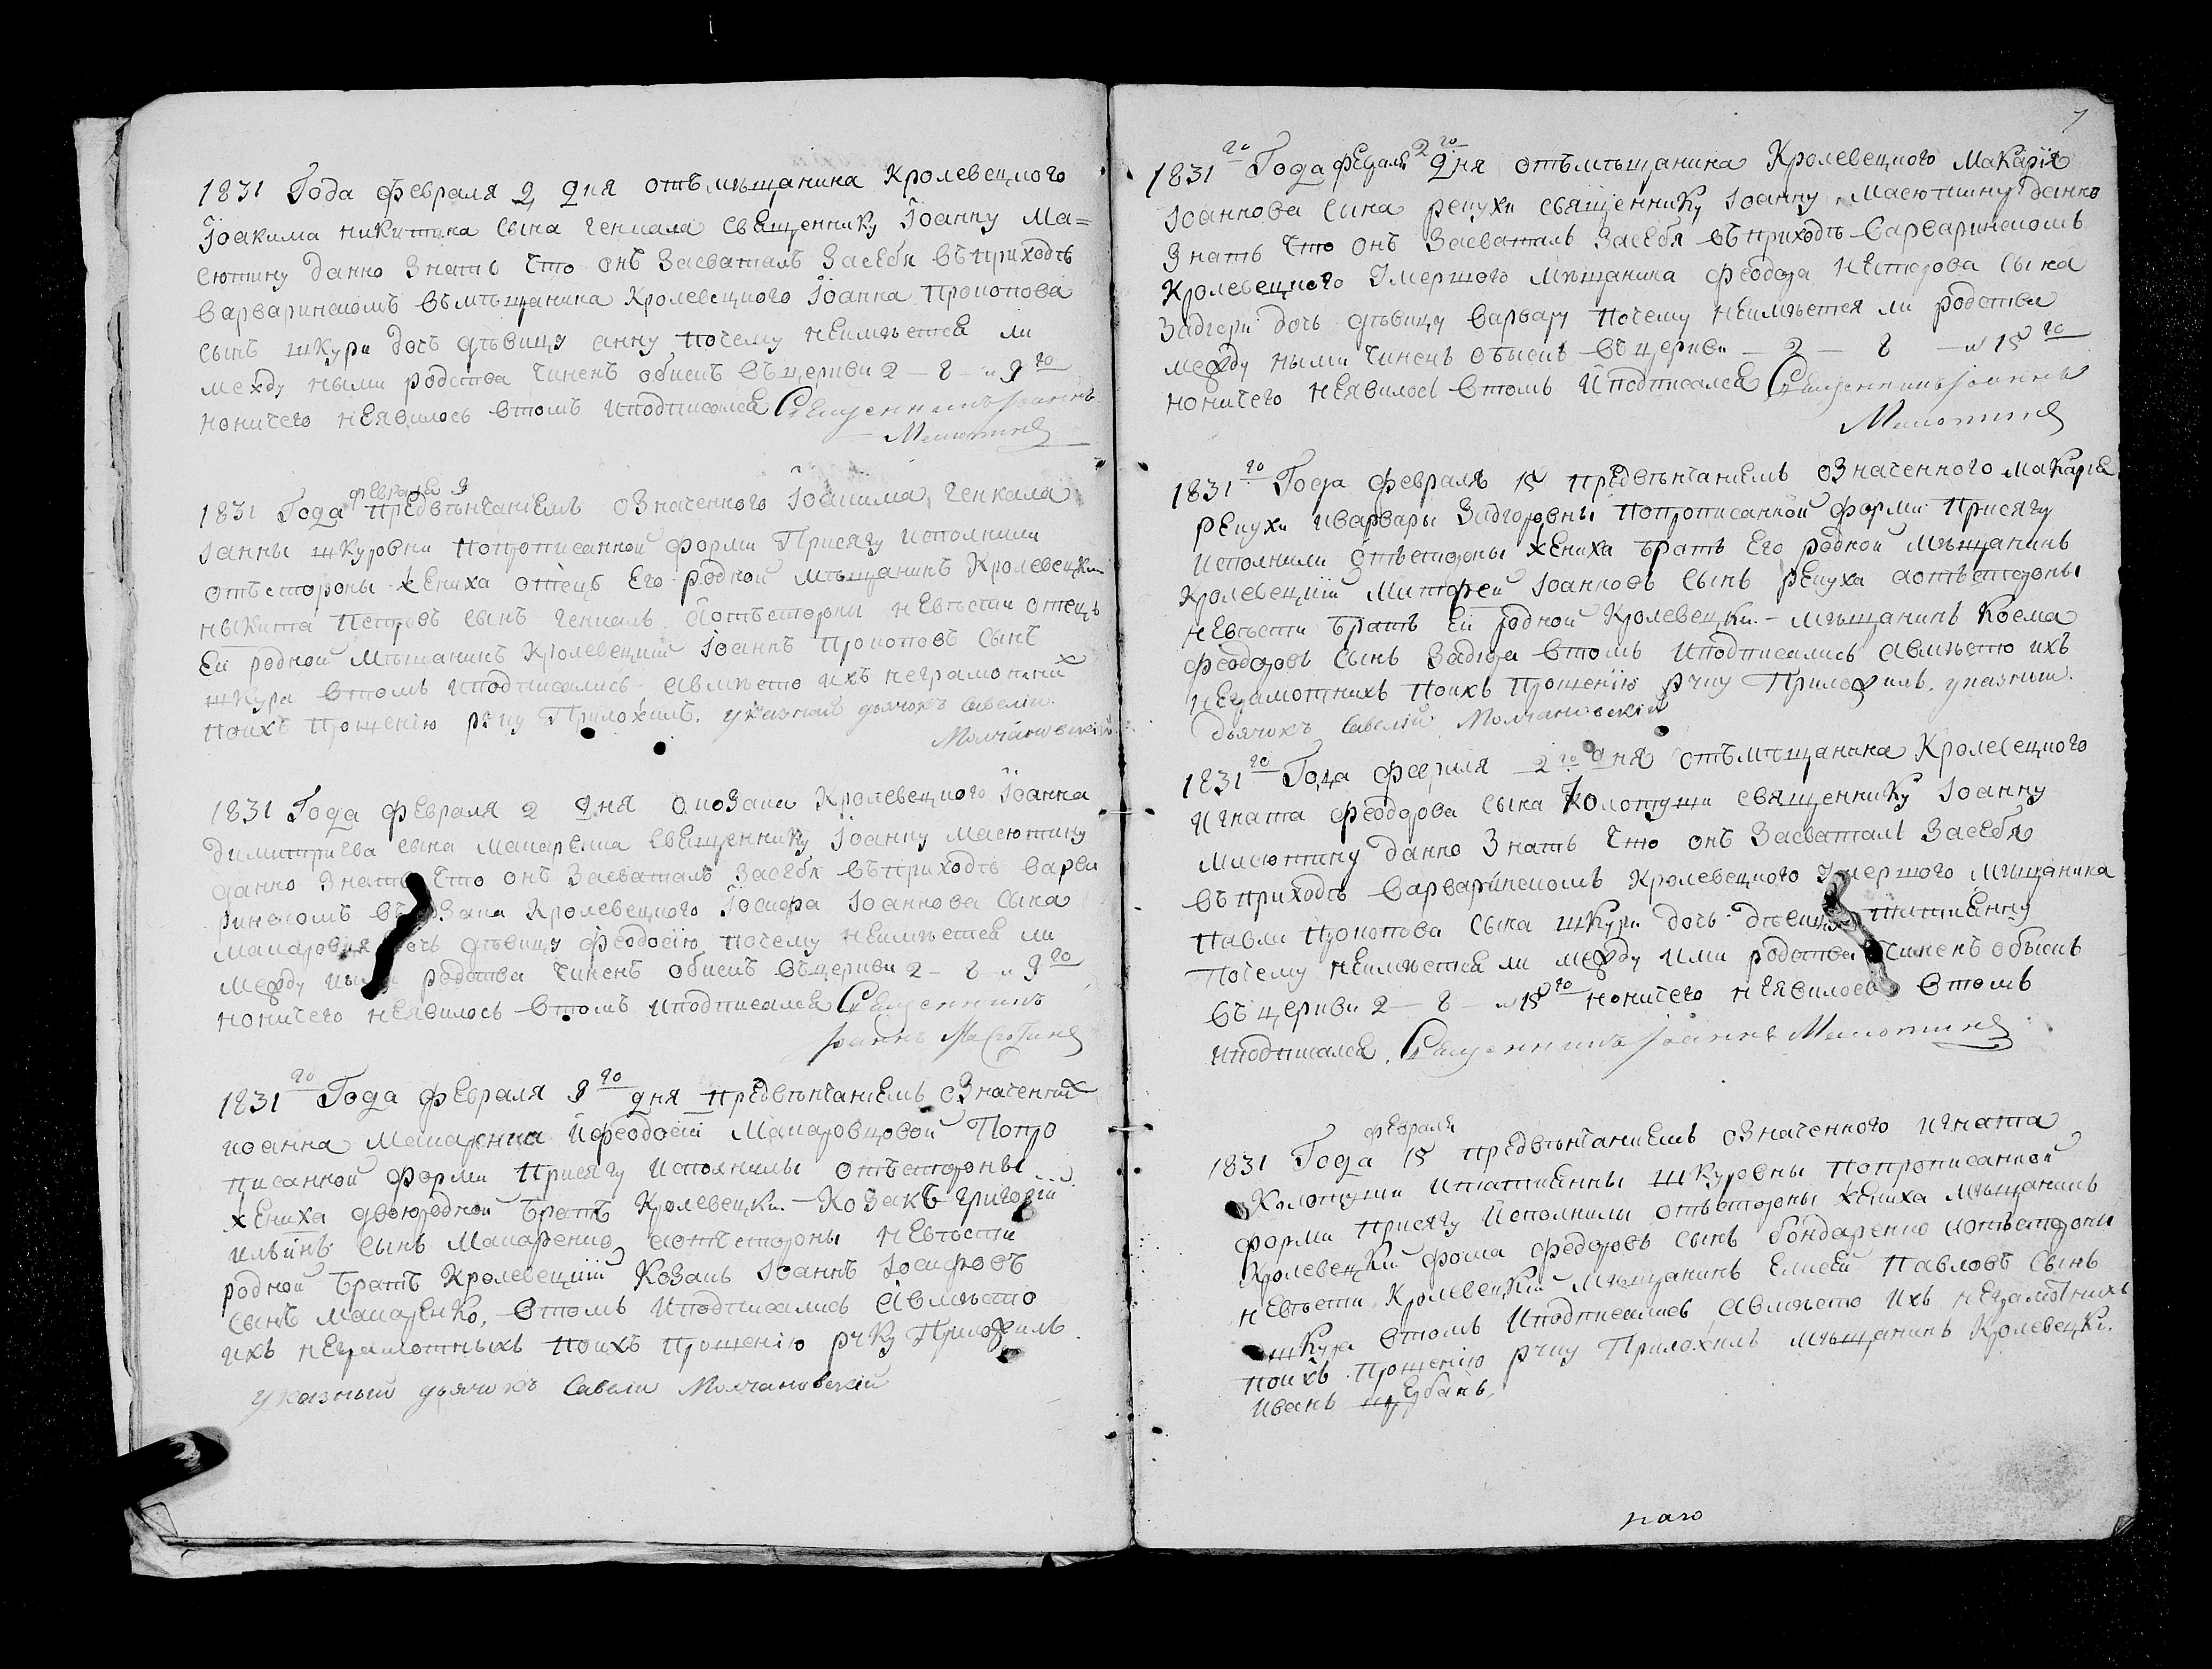 1831 Года февраля 2 дня отъ мѣщанина Кролевецкого
Іоакима никитина сына генкала свЕщеннику Іоанну Ма=
сютину данно знать что онъ Засваталъ ЗасЕбя въ приходѣ
варваринскомъ въ мѣщанина Кролевецкого Іоанна прокопова
сынъ шкури дочь дѣвицу анну почему неимѣется ли
между ными родства чиненъ обискъ въ церкви 2 – 8 – и 9го
ноничего неявилось втомъ иподписался СвЕщенникъ Іоаннъ
Масютинъ
1831 Года февраля 9 предвѣнчаніемъ означенного Іоакима генкала
Іанны шкуровни попрописанной форми Присягу исполнили
отъ стороны жениха отецъ Его родной мѣщанинъ Кролевецкій
ныкита петровъ сынъ генкалъ аотъ сторони невѣсти отецъ
Ей родной мѣщанинъ Кролевецкій Іоаннъ прокоповъ сынъ
шкура втомъ иподписались авмѣсто ихъ неграмотних
поихъ прошенію руку Приложилъ. указний дьячокъ Савелій
Молчановскій
1831 Года февраля 2 дня Окозака Кролевецкого Іоанна
димитриева сына макаренка свЕщеннику Іоанну масютину
данно знать что онъ Засваталъ ЗасЕбя въ приходѣ варва
ринскомъ въ козака Кролевецкого Іосифа Іоаннова сына
макаровця дочь дѣвицу феодосію почему неимѣется ли
между ными родства чиненъ обискъ въ церкви 2 – 8 – и 9го
ноничего неявилось втомъ иподписался СвЕщенникъ
Іоаннъ Масютинъ
1831го Года февраля 9го дня предвѣнчаніемъ означених
иоанна Макаренка ифеодосіи Макаровцовой Попро
писанной форми присягу исполнилы отъ стороны
жениха двоюродной братъ Кролевецки. Козакъ григорій
ильинъ сынъ Макаренко аотъ стороны невѣсти
родной братъ Кролевецкій Козакъ Іоаннъ Іосифовъ
сынъ макаренко, втомъ иподписались авмѣсто
ихъ неграмотныхъ поихъ прошенію руку Приложилъ
указный дьячокъ Савелій Молчановскій
7
1831го Года февраля 2го дня отъ мѣщанина Кролевецкого Макарія
Іоаннова сина репухи священнику Іоанну Масютину данно
знать что онъ Засваталъ ЗасЕбя въ приходѣ Варваринскомъ
Кролевецкого Умершого мѣщанина Феодора Нестерова сына
Задгори дочь дѣвицу варвару почему неимѣется ли родства
между ными чиненъ обыскъ въ церкви – 2 – 8 – и 15го
ноничего неявилось втомъ иподписался СвЕщенникъ Іоаннъ
Масютинъ
1831го Года февраля 15 предвѣнчаніемъ означенного макарія
Репухи иварвары Задгоровны попрописанной форми присягу
исполнили отъ стороны жениха братъ Его родной мѣщанинъ
Кролевецкій Митофей Іоанновъ сынъ репуха аотъ стороны
невѣсти братъ Ей родной Кролевецки. мѣщанинъ Косма
феодоровъ сынъ Задгора втомъ иподписались авмѣсто ихъ
неграмотнихъ поихъ прошенію руку Приложилъ. указний.
дьячокъ Савелій Молчановскій
1831го Года февраля 2го дня отъ мѣщанина Кролевецкого
Игната феодорова сына Колотуши священнику Іоанну
Масютину данно знать что онъ Засваталъ ЗасЕбя
въ приходѣ варваринскомъ Кролевецкого Умершого мѣщанина
Павла прокопова сына шкури дочь дѣвицу татиянну
почему неимѣется ли между ими родства чиненъ обыскъ
въ церкви 2 – 8 – и 15го ноничего неявилось втомъ
иподписался. СвЕщенникъ Іоаннъ Масютинъ
1831 Года февраля 15 предвѣнчаниемъ означенного игната
Колотуши итатиянны шкуровны попрописанной
форми присягу исполнили отъ стороны жениха мѣщанинъ
Кролевецкій фома федоровъ сынъ бондаренко иотъ сторони
невѣсти Кролевецкій мѣщанинъ Елисей павловъ сынъ
шкура втомъ иподписались авмѣсто ихъ неграмотнихъ
поихъ прошенію руку Приложилъ мѣщанинъ Кролевецки.
иванъ щербанъ.